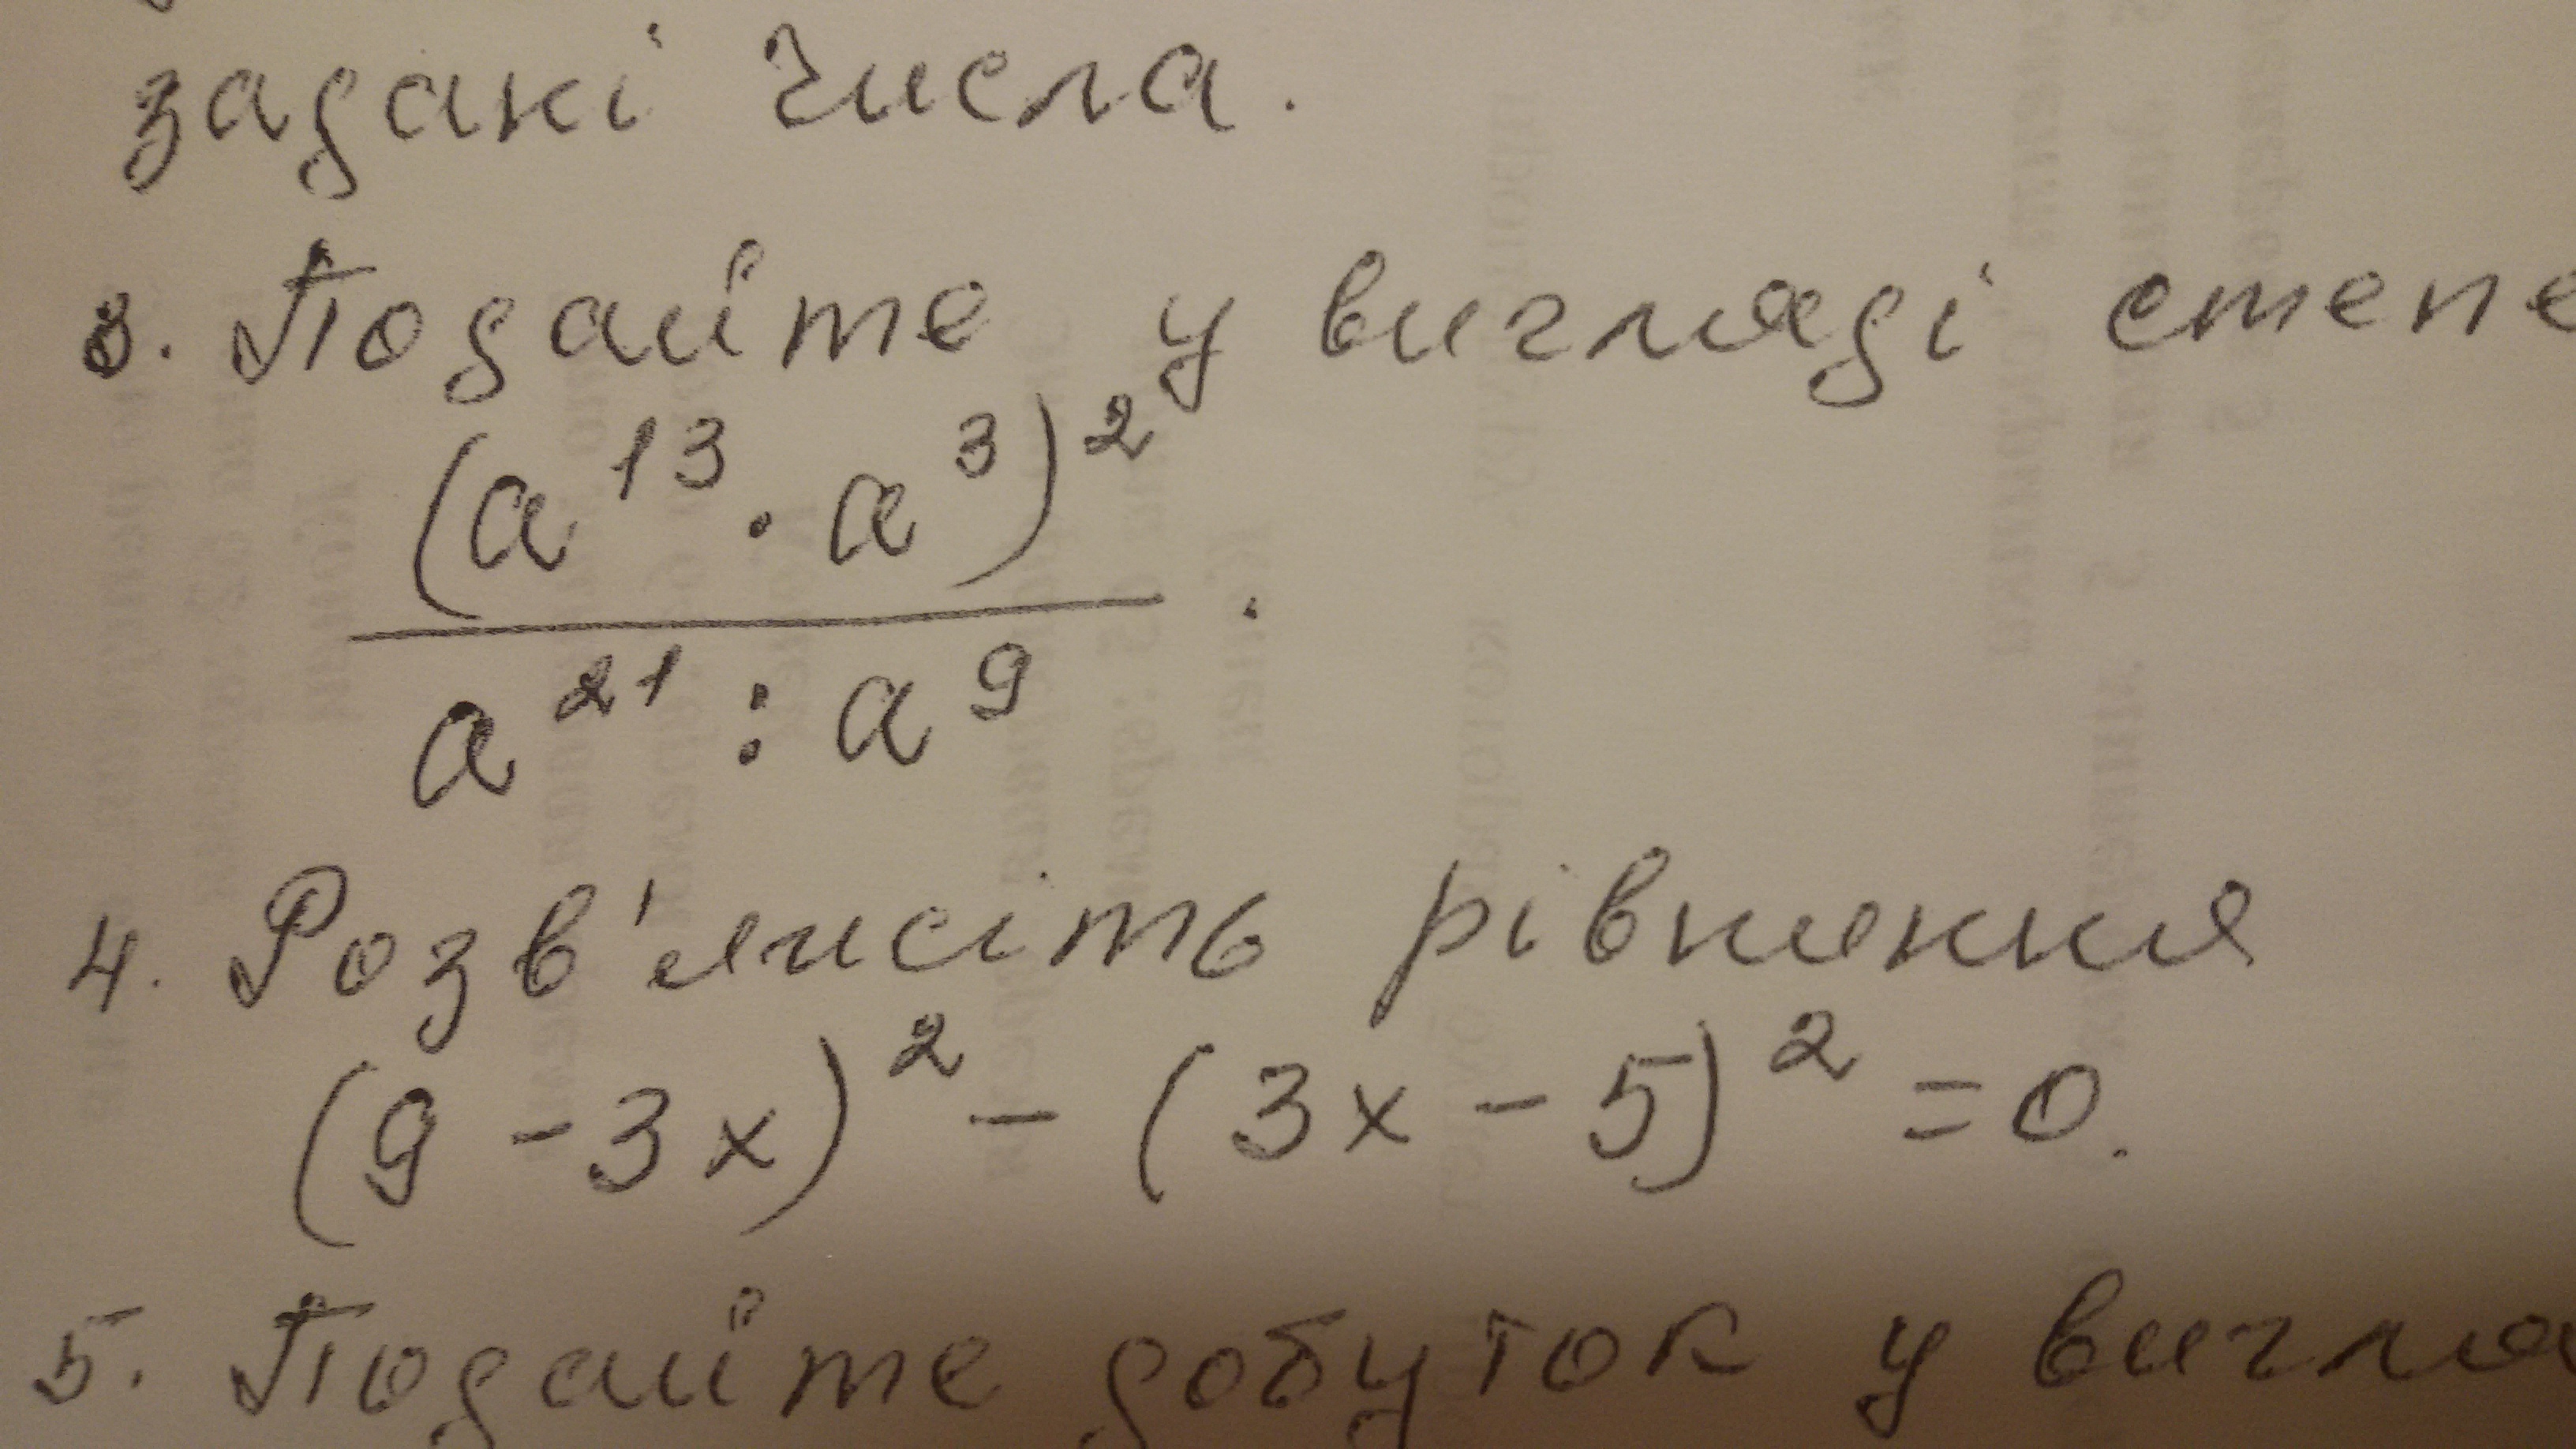 задані числа.
3. Подайте у вигляді степе
(a¹³ · a³)²
a²¹ : a⁹ .
4. Розв'яжіть рівняння
(9 - 3x)² - (3x - 5)² = 0.
5. Подайте добуток у вигля